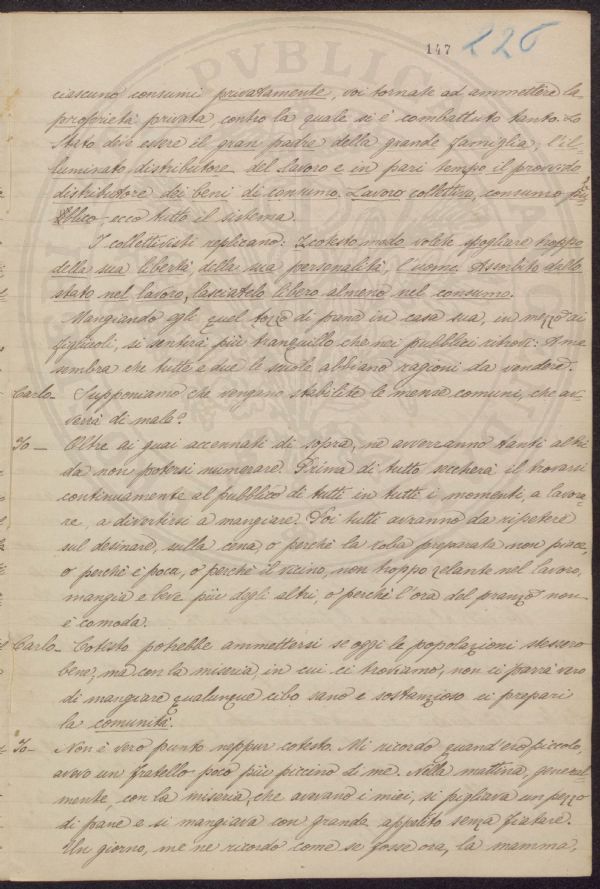 147 226
ciascuno consumi privatamente, voi tornate ad ammettere la
proprietà privata, contro la quale si è combattuto tanto. Lo
Stato deve essere il gran padre della grande famiglia, l'il-
luminato distributore del lavoro e in pari tempo il provvido
distributore dei beni di consumo. Lavoro collettivo, consumo pu
bblico ecco tutto il sistema.
I collettivisti replicano: In cotesto modo volete spogliare troppo
della sua libertà, della sua personalità, l'uomo. Assorbito dallo
stato nel lavoro, lasciatelo libero almeno nel consumo.
Mangiando egli quel tozzo di pane in casa sua, in mezzo ai
figliuoli, si sentirà più tranquillo che nei pubblici ritrovi: A me
sembra che tutte e due le scuole abbiano ragioni da vendere.
Carlo – Supponiamo che vengano stabilite le mense comuni, che av-
verrà di male?
Io – Oltre ai guai accennati di sopra, ne avverranno tanti altri
da non potersi numerare. Prima di tutto seccherà il trovarsi
continuamente al pubblico di tutti in tutti i momenti, a lavora-
re, a divertirsi a mangiare. Poi tutti avranno da ripetere
sul desinare, sulla cena, o perchè la roba preparata non piace,
o perchè è poca, o perchè il vicino, non troppo zelante nel lavoro,
mangia e beve più degli altri, o perchè l'ora del pranzo non
è comoda.
Carlo – Cotesto potrebbe ammettersi se oggi le popolazioni stessero
bene; ma con la miseria, in cui ci troviamo, non ci parrà vero
di mangiare qualunque cibo sano e sostanzioso ci prepari
la comunità.
Io – Non è vero punto neppur cotesto. Mi ricordo quand'ero piccolo,
avevo un fratello poco più piccino di me. Nella mattina, general-
mente, con la miseria, che avevano i miei, si pigliava un pezzo
di pane e si mangiava con grande appetito senza fiatare.
Un giorno, me ne ricordo come se fosse ora, la mamma,